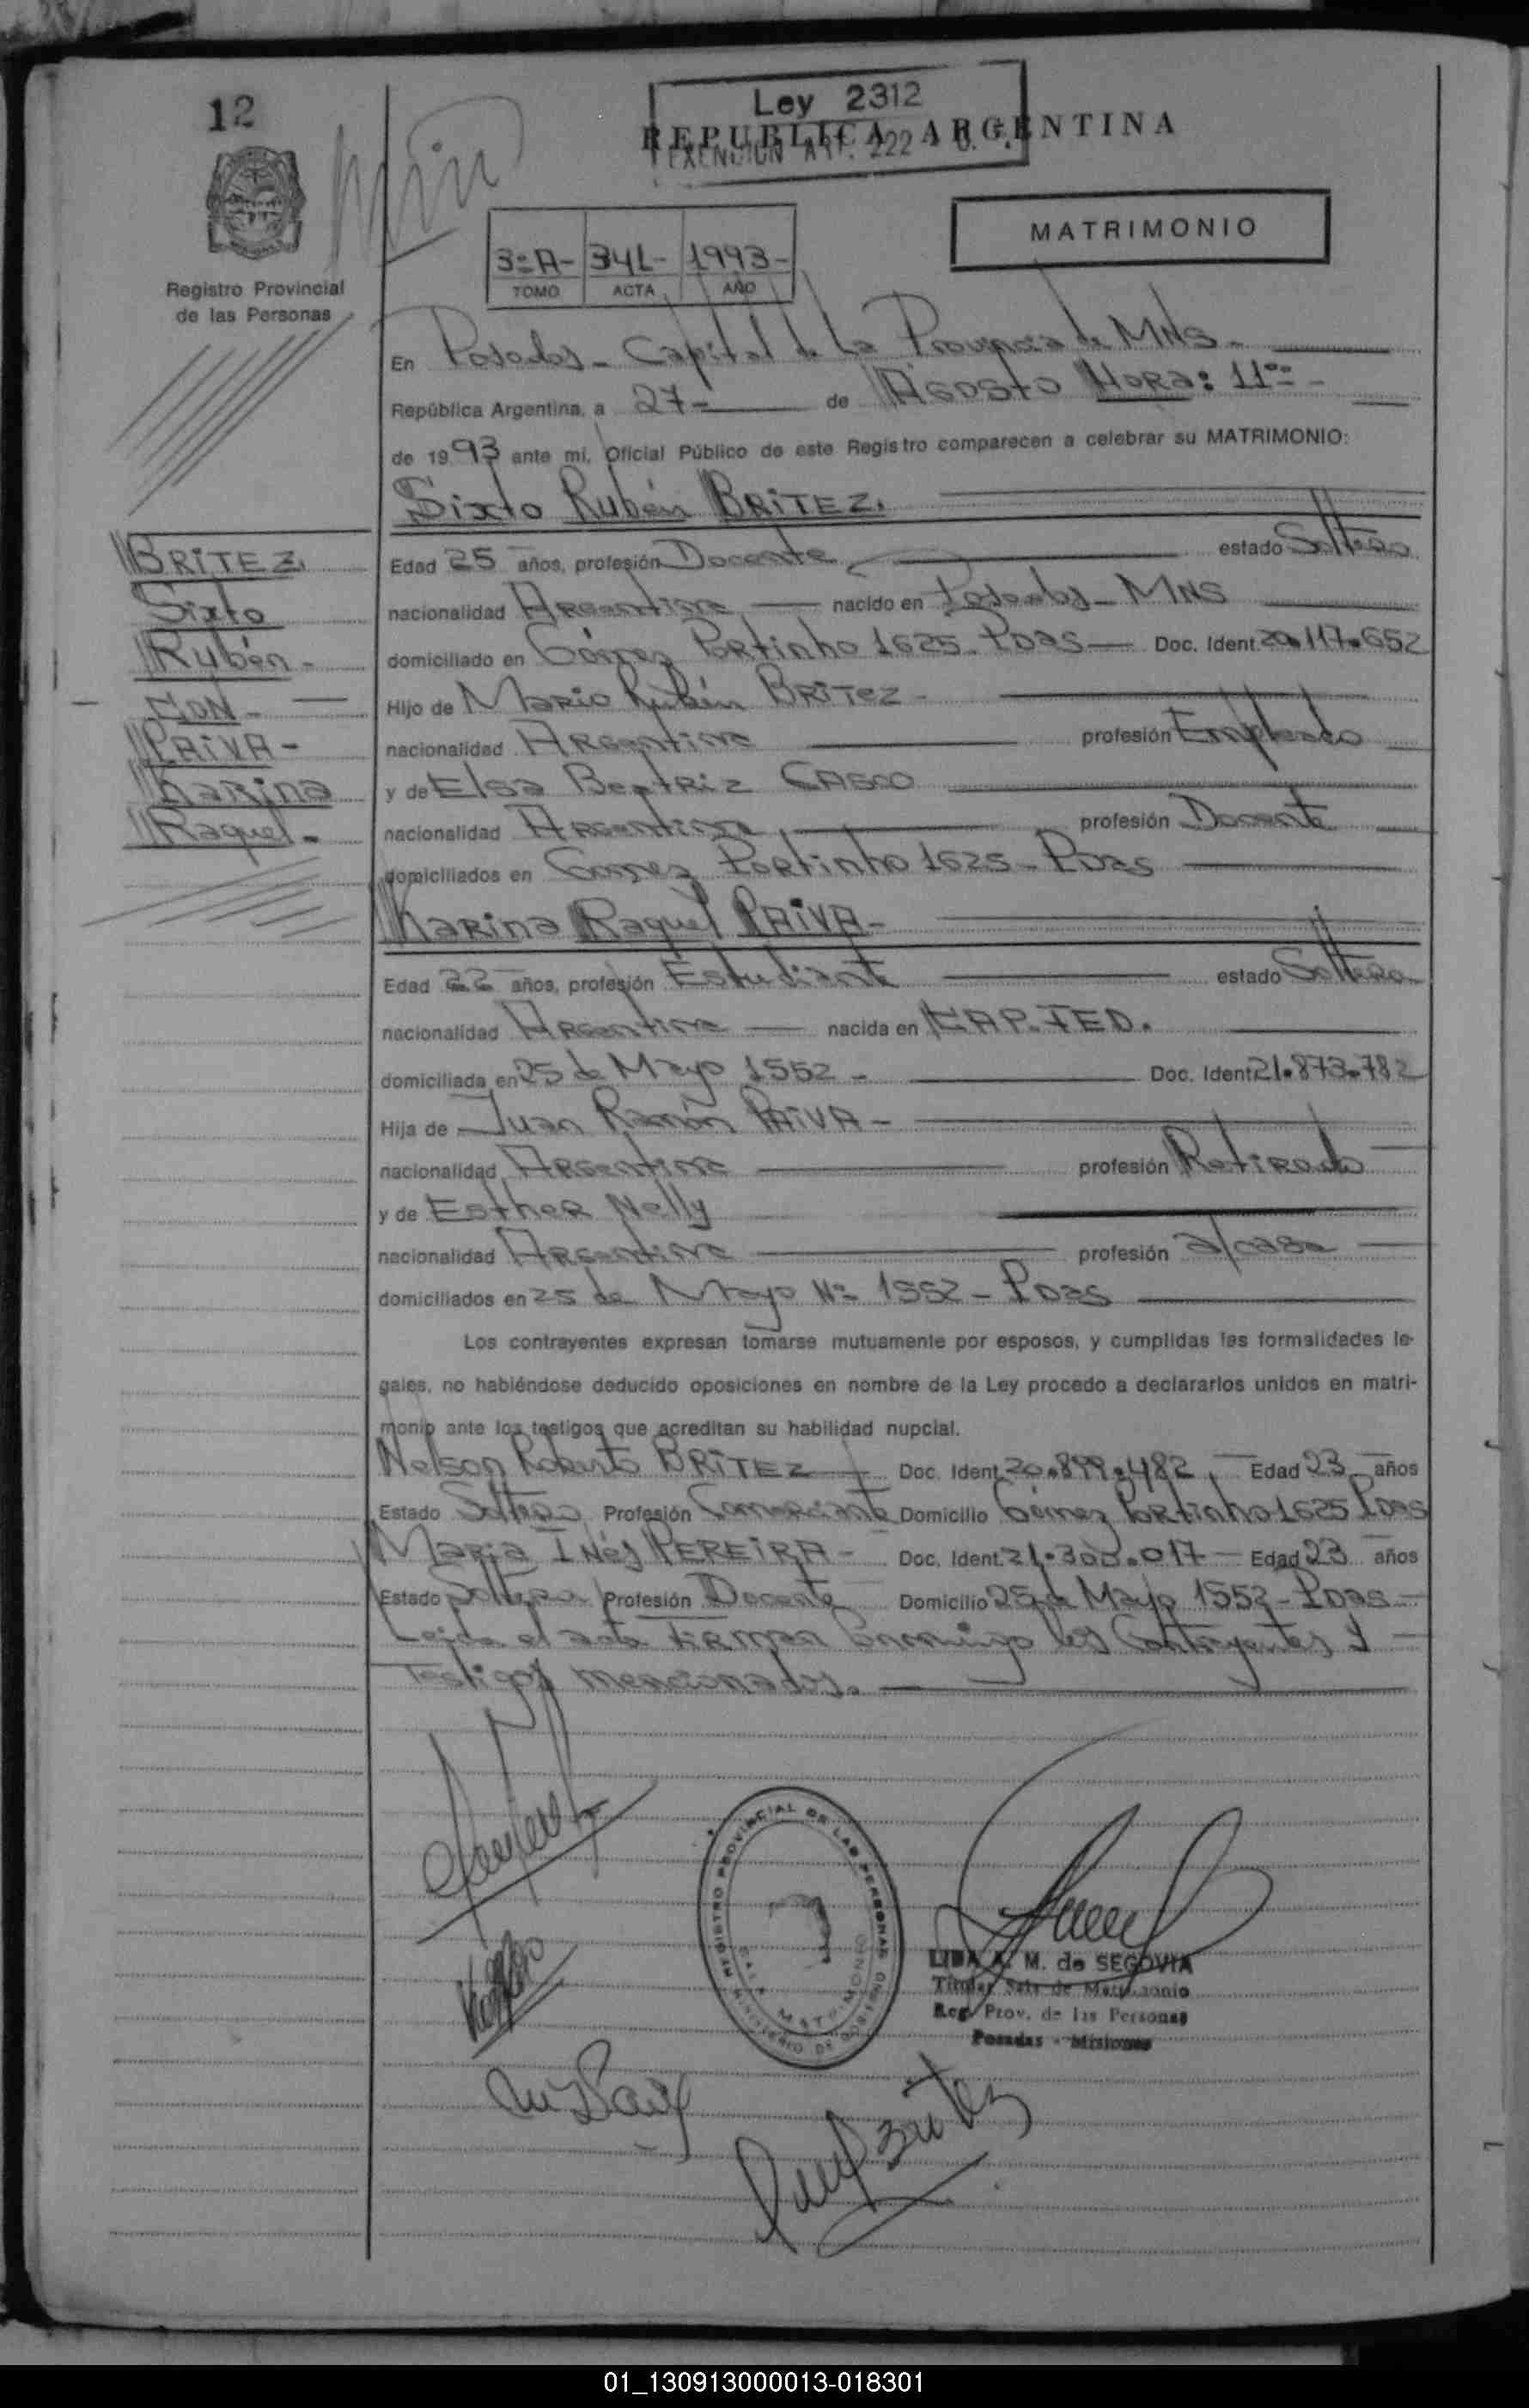 12
Ley 2312
REPUBLICA ARGENTINA
EXENCION ART. 222
MATRIMONIO
3º A- 341- 1993-
TOMO ACTA AÑO
Registro Provincial
de las Personas
En Posadas - Capital de La Provincia de MNS.
República Argentina, a 27- de Agosto Hora: 11
de 1993 ante mi, Oficial Público de este Registro comparecen a celebrar su MATRIMONIO:
Sixto Rubén BRITEZ.
BRITEZ
Sixto
Rubén -
CON -
PAIVA -
Karina
Raquel -
Edad 25 años, profesión Docente estado Soltero
nacionalidad Argentina nacido en Posadas - MNS
domiciliado en Gómez Portinho 1625 - Pdas Doc. Ident. 20.117.652
Hijo de Mario Rubén BRITEZ -
nacionalidad Argentina profesión Empleado
y de Elsa Beatriz CASCO
nacionalidad Argentina profesión Docente
domiciliados en Gomez Portinho 1625 - Pdas
Karina Raquel PAIVA -
Edad 22 años, profesión Estudiante estado Soltera
nacionalidad Argentina nacida en CAP. FED.
domiciliada en 25 de Mayo 1552 - Doc. Ident. 21.873.782
Hija de Juan Ramón PAIVA -
nacionalidad Argentina profesión Retirado
y de Esther Nelly
nacionalidad Argentina profesión a/casa
domiciliados en 25 de Mayo Nº 1552 - Pdas
Los contrayentes expresan tomarse mutuamente por esposos, y cumplidas las formalidades le-
gales, no habiéndose deducido oposiciones en nombre de la Ley procedo a declararlos unidos en matri-
monio ante los testigos que acreditan su habilidad nupcial.
Nelson Roberto BRITEZ Doc. Ident. 20.899.482, Edad 23 años
Estado Soltero Profesión Comerciante Domicilio Gómez Portinho 1625 Pdas
Maria Inés PEREIRA - Doc. Ident. 21.300.017 - Edad 23 años
Estado Soltera Profesión Docente Domicilio 25 de Mayo 1552 - Pdas -
Leida el acta firman conmigo los Contrayentes y
Testigos mencionados.
REGISTRO PROVINCIAL DE LAS PERSONAS
SALA MATRIMONIO
MINISTERIO DE GOBIERNO
LIDA A. M. de SEGOVIA
Titular Sala de Matrimonio
Reg. Prov. de las Personas
Posadas - Misiones
01_130913000013-018301